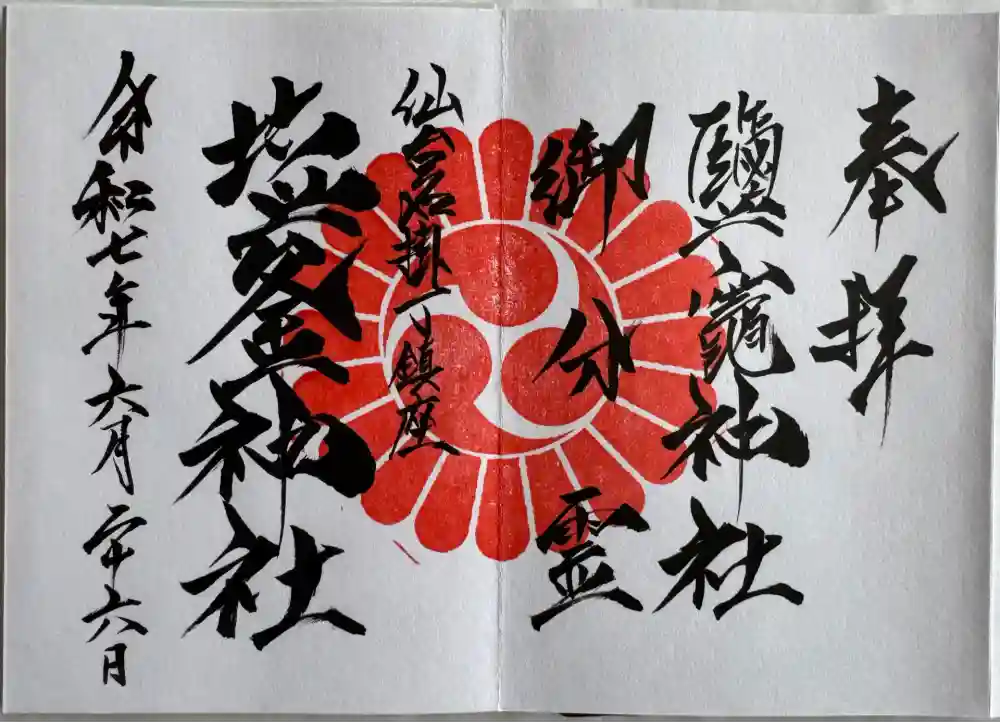 奉拝
鹽竈神社
御分霊
仙臺名掛丁鎮座
塩釜神社
令和七年六月二十六日